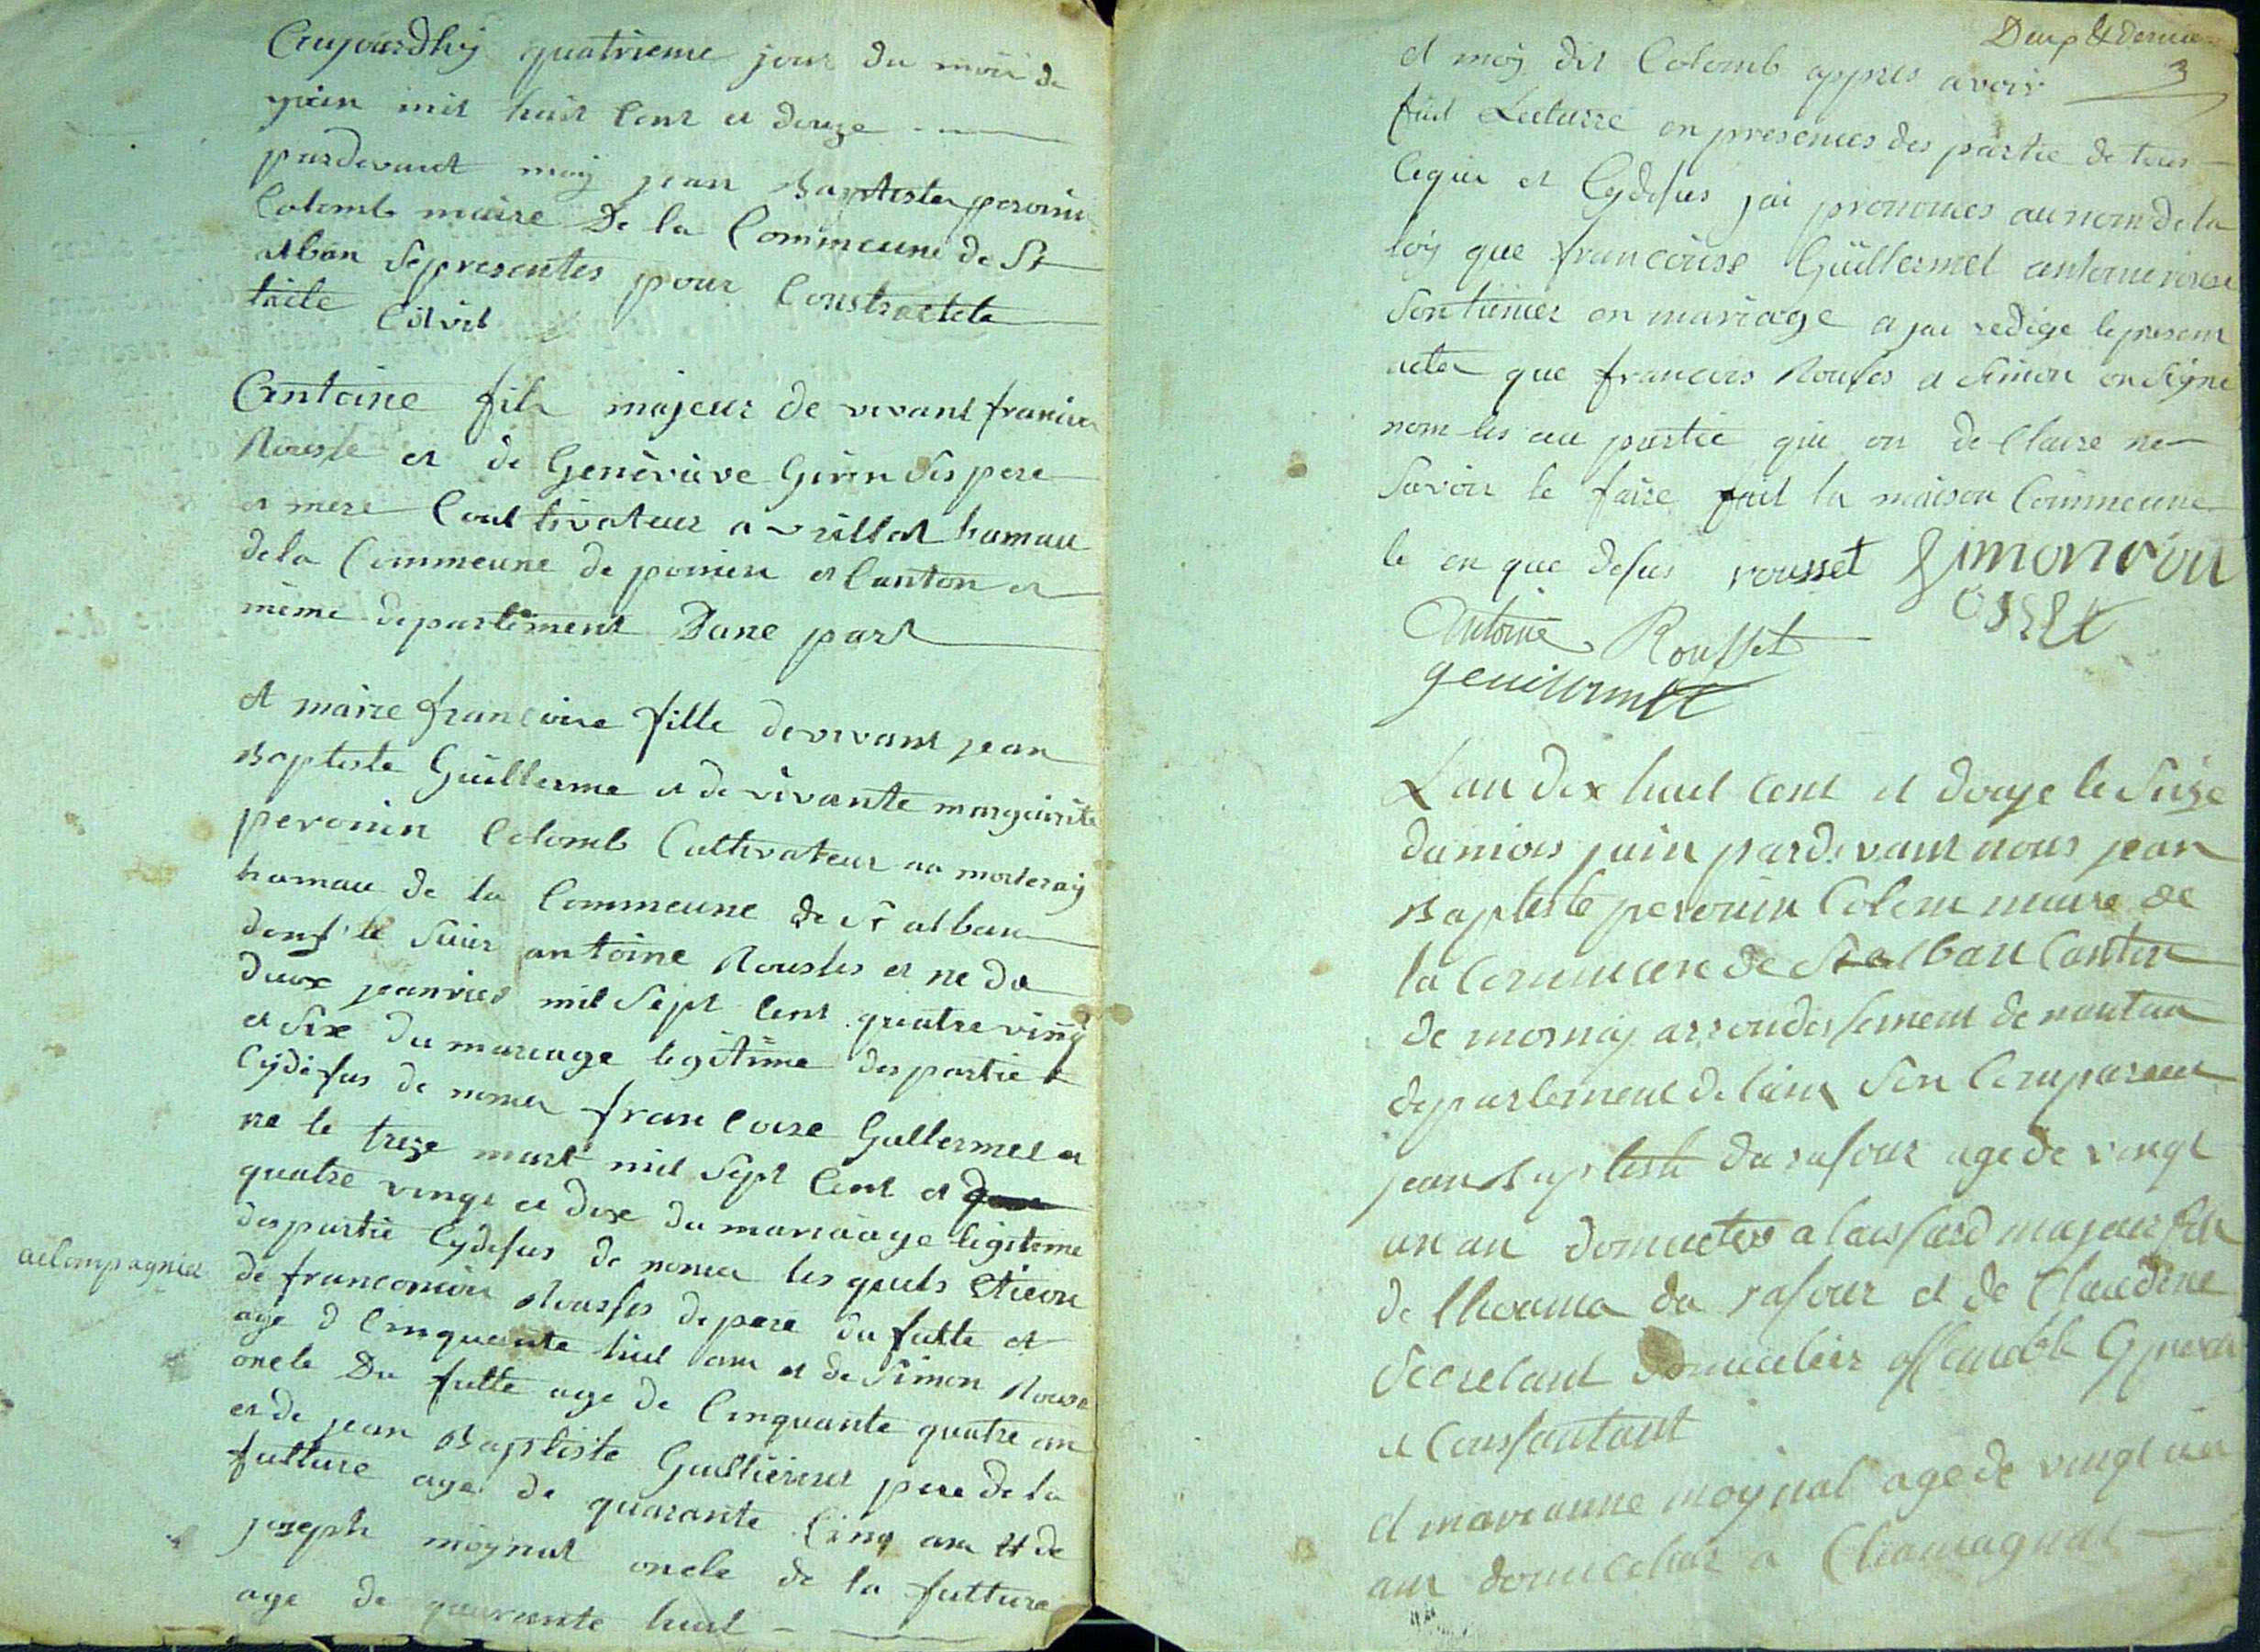 Aujourdhuy quatrieme jour du mois de
juin mil huit Cent et douze
pardevant moy jean Baptiste peronin
Colomb maire De la Commeune de St
alban se presentes pour Constracte
laite Civil
Antoine fils majeur de vivant francois
Rousse et de Genevieve Girin ses pere
et mere Coultivateur a vrillat hamau
de la Commeune de et Canton et
même departement Dune part
et marie francoise fille de vivant jean
Baptiste Guillerme et de vivante marguerite
peronin Colomb Cultivateur au morteray
hamau de la Commeune de St alban
le Suis antoine Rousses et ne du
deux jeanvier mil Sept Cent quatre ving
et Six du mariage legitime des partie
Cydesus de nomer francoise Gullermet et
ne le treze mart mil Sept Cent et
quatre vingt et dixe du mariaage legiteme
des partie Cydesus de nomer les quels
accompagnier
de Rousses de pere du futte et
age d Cinquante huit ans et de Simon Rouse
oncle Du futte age de Cinquante quatre an
et de jean Baptiste pere de la
futture age de quarante Cinq ans et de
joseph moynat oncle de la futture
age de quarante huit
Deux & dernier
3
et moy dit Colomb appres avoir
fait Lecturre en presences des partie de tous
Ce que et Cydesus jai pronomces au nom de la
loy que francoise Guillermet antoine rousse
Son hunier en mariage et jai redige le present
actes que francois Rouses et Simon on Signe
nom les au partie qui on de Claire ne
Savoir le faire fait la maison Commeune
le en que desus rousset Simon rou
sset
Antoine Rousset
geuillermet
L an dix huit Cent et douze le Sieze
du mois juin pardevant nous jean
Baptiste peronin Colom maire de
la Commeune de St alban Canton
de mornay arrondissement de nantua
departement de lain Son Compareut
jean Baptiste du rafour age de vingt
un an a majeur fils
de du rafour et de Claudine
Secretant
et Consantant
et marianne moynat age de vingt un
ans a Chamagnat